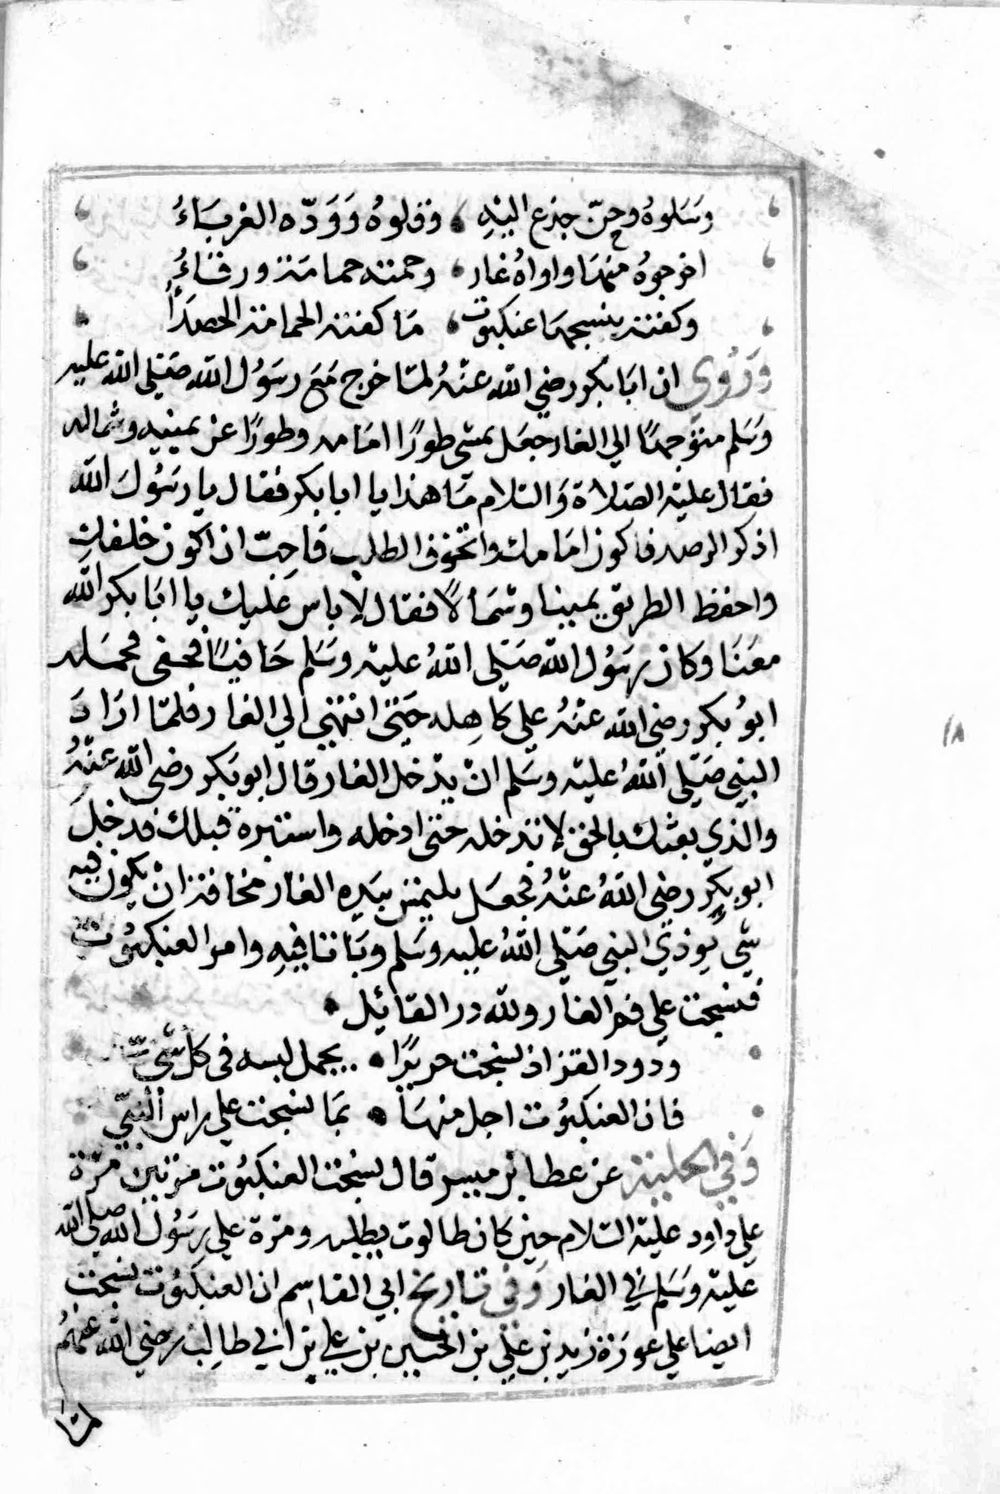 وسلوه وحن جذع اليه ، وقلوه ووده الغرباء
اخرجوه منها واواه غار ، وحمته حمامة ورقاء
وكفته بنسجها عنكبوت ، ما كفته الحمامة الحصداء
وروي ان ابا بكر رضي الله عنه لما خرج مع رسول الله صلى الله عليه
وسلم متوجها الي الغار جعل يمشي طورا امامه وطورا عن يمينه وشماله
فقال عليه الصلاة والسلام ما هذا يا ابا بكر فقال يا رسول الله
اذكر الرصد فاكون امامك واتخوف الطلب فاحب ان اكون خلفك
واحفظ الطريق يمينا وشمالا فقال لا باس عليك يا ابا بكر الله
معنا وكان رسول الله صلى الله عليه وسلم حافيا فحفى فحمله
ابو بكر رضي الله عنه علي كاهله حتى انتهي الي الغار فلما اراد
النبي صلى الله عليه وسلم ان يدخل الغار قال ابو بكر رضى الله عنه
والذي بعثك بالحق لا تدخله حتى ادخله واستبره قبلك فدخل
ابو بكر رضى الله عنه فجعل يلتمس بيده الغار مخافة ان يكون فيه
شي يوذي النبي صلى الله عليه وسلم وباتا فيه وامر العنكبوت
فنسجت علي فم الغار ولله در القائيل
ودود القز اذ نسجت حريرا ، يجمل لبسه في كل شي
فان العنكبوت اجل منها ، بما نسجت علي راس النبي
وفي الحلية عن عطا بن ميسر قال نسجت العنكبوت مرتين مرة
علي داود عليه السلام حين كان طالوت يطلبه ومرة علي رسول الله صلى الله
عليه وسلم في الغار وفي تاريخ ابي القاسم ان العنكبوت نسجت
ايضا علي عورة زيد بن علي بن الحسين بن علي بن ابي طالب رضي الله عنهم
لما
١٨